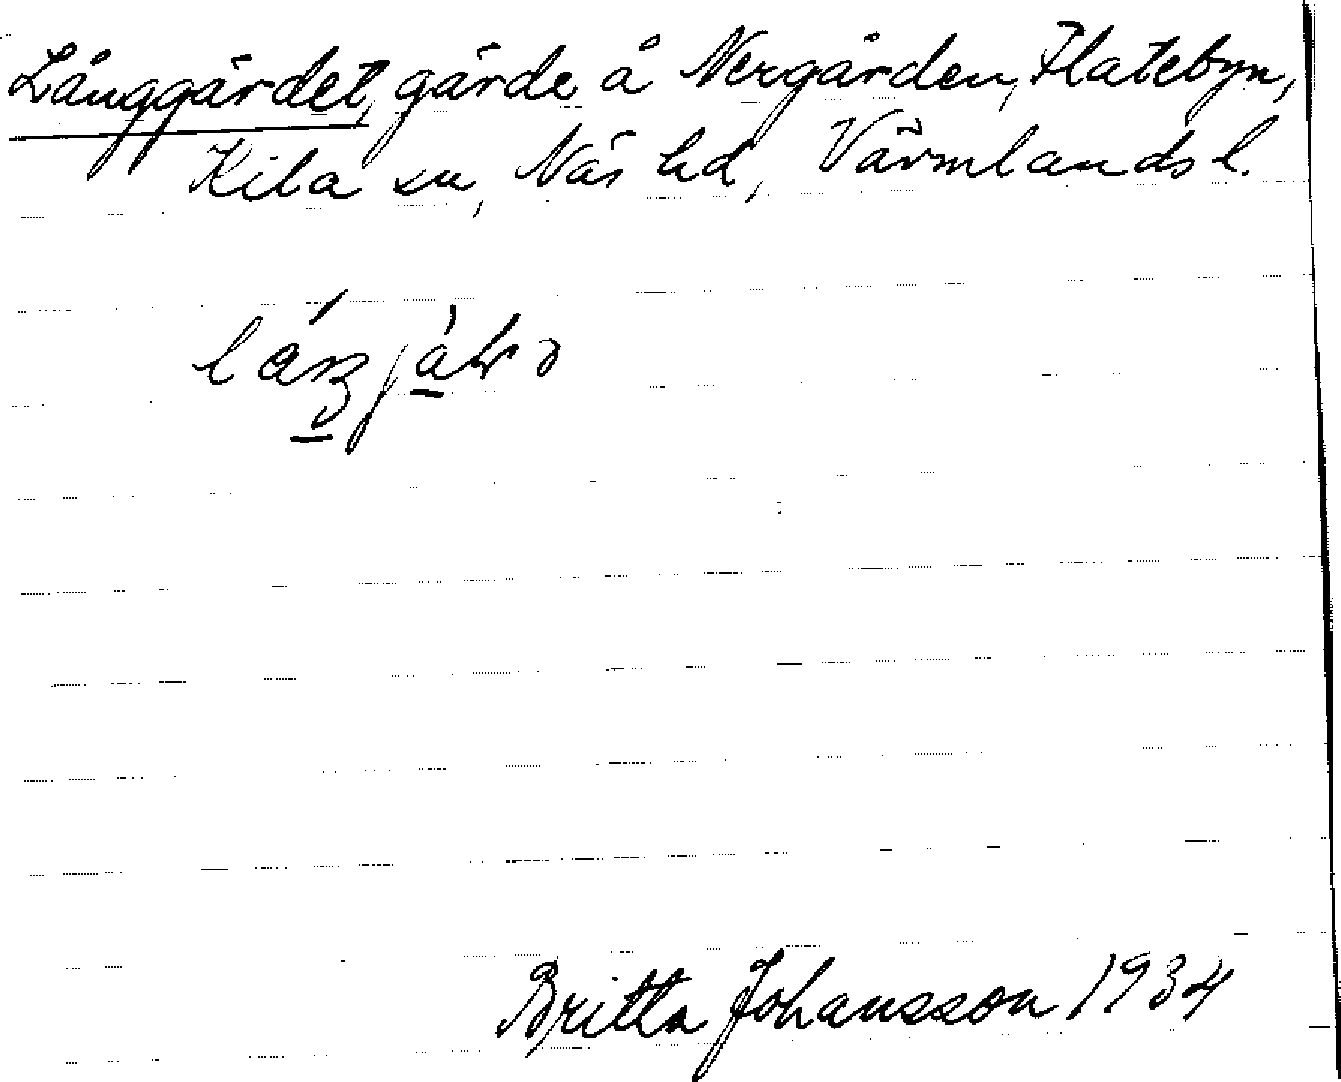 Långgärdet, gärde å Nergården, Flatebyn,
Kila sn, Näs hd, Värmlands l.
Britta Johansson 1934